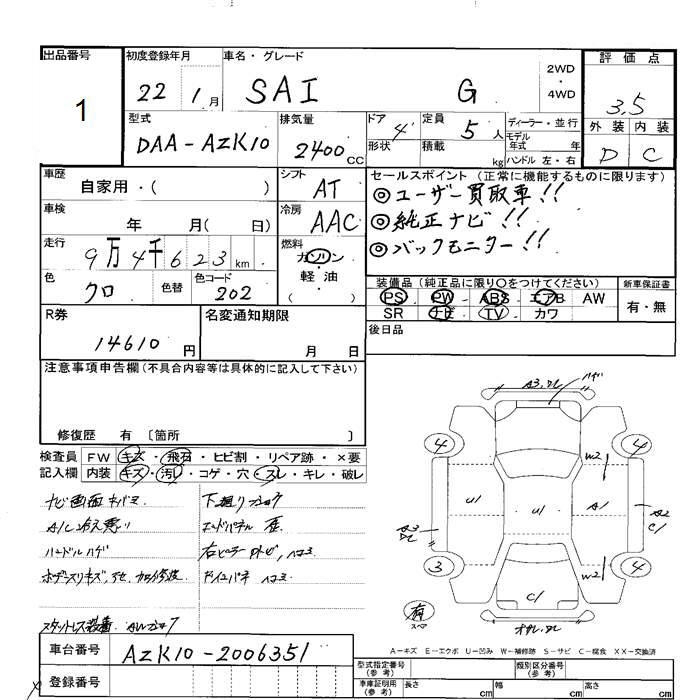 出品番号
1
初度登録年月
22 1月
車名・グレード
SAI G
2WD
・
4WD
評価点
3.5
外装 内装
D C
型式
DAA-AZK10
排気量
2400 CC
ドア 4
形状
定員 5人
積載 kg
ディーラー・並行
モデル年式 年
ハンドル 左・右
車歴
自家用・( )
シフト
AT
セールスポイント (正常に機能するものに限ります)
◎ユーザー買取車!!
◎純正ナビ!!
◎バックモニター!!
車検
年 月( 日)
冷房
AAC
走行
9万4千623km
燃料
ガソリン
・
軽油
( )
色
クロ
色替
色コード
202
装備品 (純正品に限り○をつけてください)
PS・PW・ABS・エアB AW
SR ナビ・TV・カワ
新車保証書
有・無
R券
14610円
名変通知期限
月 日
後日品
注意事項申告欄 (不具合内容等は具体的に記入して下さい)
修復歴 有 〔箇所 〕
検査員 FW キズ・飛石・ヒビ割・リペア跡・×要
記入欄 内装 キズ・汚レ・コゲ・穴・スレ・キレ・破レ
ナビ画面キバミ
A/C冷え悪い
ハンドルハゲ
下廻り
エンドパネル
A3,
ハゲ
4 4
W2
U1 U1 A1
A2
C1
A3
3 4
W2
C1
有
スペア
A-キズ E-エクボ U-凹み W-補修跡 S-サビ C-腐食 XX-交換済
車台番号
AZK10-2006351
登録番号
型式指定番号
(参考)
類別区分番号
(参考)
車庫証明用
(参考)
長さ cm 幅 cm 高さ cm